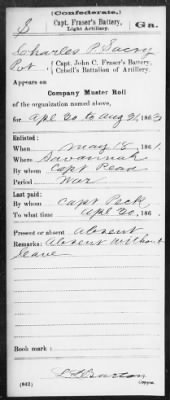 (Confederate.)
S
Capt. Fraser's Battery,
Light Artillery.
Ga.
Charles P.
Pvt
Capt. John C. Fraser's Battery,
Cabell's Battalion of Artillery.
Appears on
Company Muster Roll
of the organization named above,
for Apl 30 to Aug 31, 1863
Enlisted:
When May 18, 1861.
Where Savannah
By whom Capt Read
Period War
Last paid:
By whom Capt Peck
To what time Apl 30, 186
Present or absent Absent
Remarks: Absent without
leave
Book mark:
(642)
Copyist.